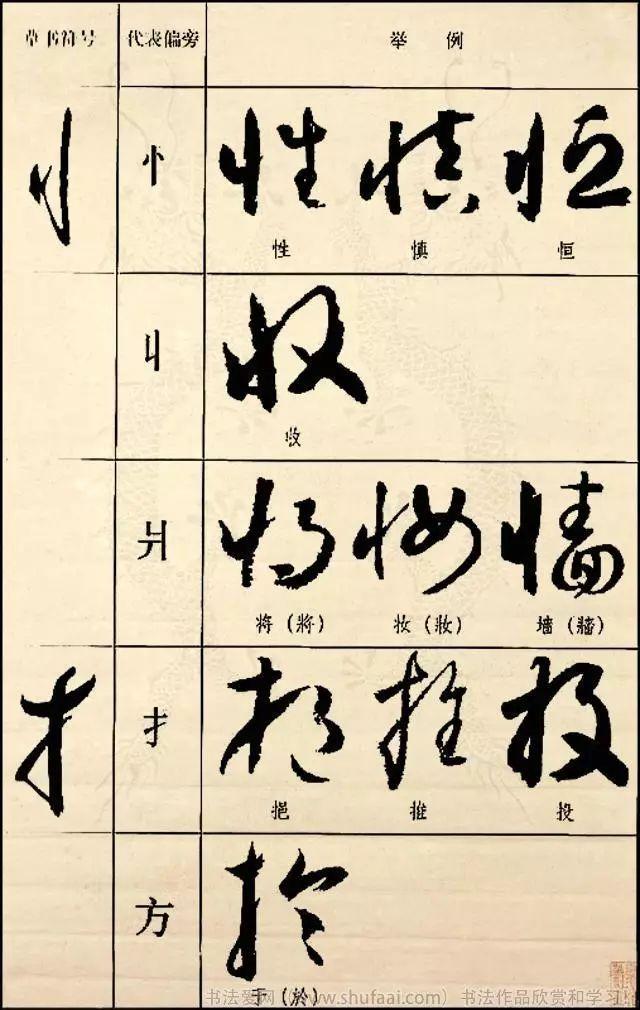 草书符号 代表偏旁 举例
忄 性 慎 恒
性 慎 恒
丩 收
收
爿 将 妆 墙
将（將） 妆（妝） 墙（牆）
扌 挹 推 投
挹 推 投
方 於
于（於）
书法爱网（www.shufaai.com）书法作品欣赏和学习！